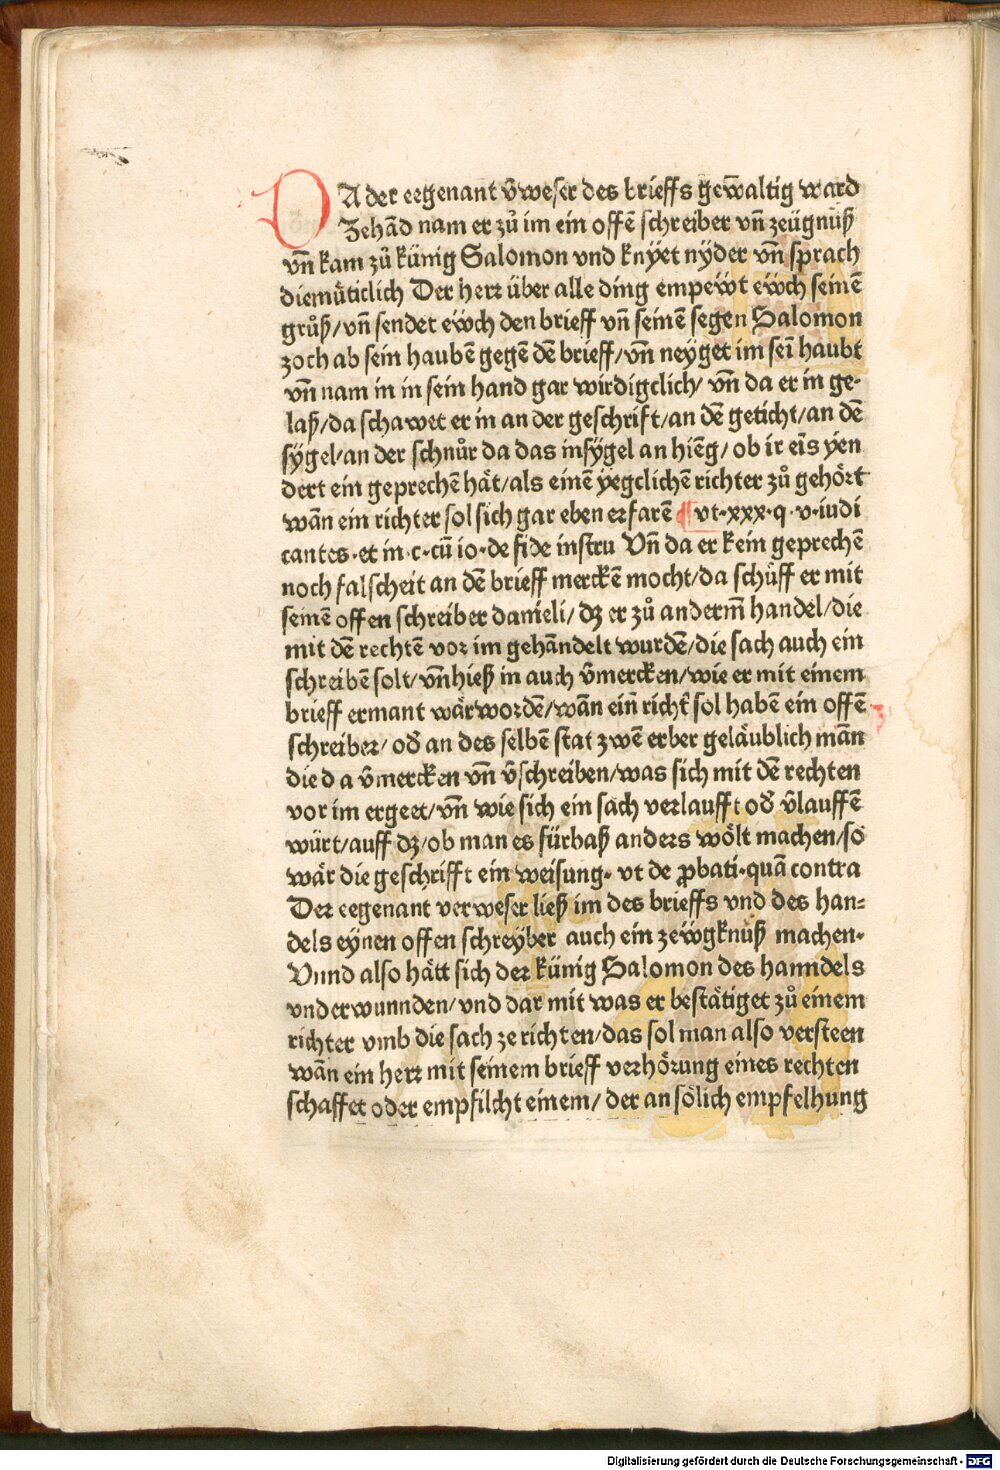 DA der eegenant v̄weser des brieffs gew̄altig ward
Zehād nam er zů im ein offē schreiber vn̄ zeügnuß
vn̄ kam zů künig Salomon vnd knÿet nÿder vn̄ sprach
diemüticlich Der herr über alle ding empeẅt eẅch seinē
grůß/vn̄ sendet eẅch den brieff vn̄ seinē segen Salomon
zoch ab sein haubē gegē dē brieff/vn̄ neyget im seī haubt
vn̄ nam in in sein hand gar wirdigclich/ vn̄ da er in ge-
laß/da schawet er in an der geschrift/an dē geticht/an dē
sÿgel/an der schnůr da das insÿgel an hiēg/ ob ir eīs ÿen
dert ein geprechē hät/als einē ÿegclichē richter zů gehört
wān ein richter sol sich gar eben erfarē ¶ vt·xxx·q·v·iudi
cantes·et in·c·cū io·de fide instru Vn̄ da er kein geprechē
noch falscheit an dē brieff merckē mocht/da schůff er mit
seinē offen schreiber danieli/ dz er zů anderm̄ handel/die
mit dē rechtē vor im gehādelt wurdē/die sach auch ein
schreibē solt/vn̄ hieß in auch v̄mercken/wie er mit einem
brieff ermant wär wordē/wān ein̄ richt̄ sol habē ein offē
schreiber/ od̄ an des selbē stat zwē erber geläublich mān
die da v̄mercken vn̄ v̄schreiben/was sich mit dē rechten
vor im ergeet/vn̄ wie sich ein sach verlaufft od̄ v̄lauffē
würt/auff dz/ob man es fürbaß anders wölt machen/so
wär die geschrifft ein weisung· vt de ꝓbati·quā contra
Der eegenant verweser ließ im des brieffs vnd des han=
dels eÿnen offen schreÿber auch ein zeẅgknuß machen·
Vnnd also hätt sich der künig Salomon des hanndels
vnderwunnden/vnd dar mit was er bestätiget zů einem
richter vmb die sach ze richten/das sol man also versteen
wān ein herr mit seinem brieff verhörung eines rechten
schaffet oder empfilcht einem/ der an sölich empfelhung
Digitalisierung gefördert durch die Deutsche Forschungsgemeinschaft - DFG